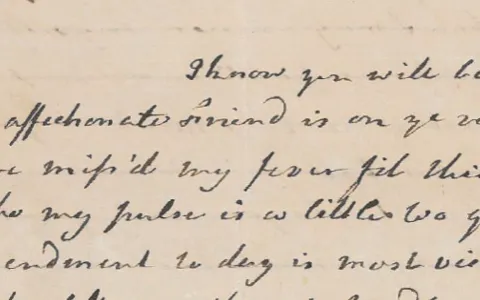 I know you will be
affectionate Friend is on ye
miss'd my fever fit
my pulse is a little too
endment to day is most